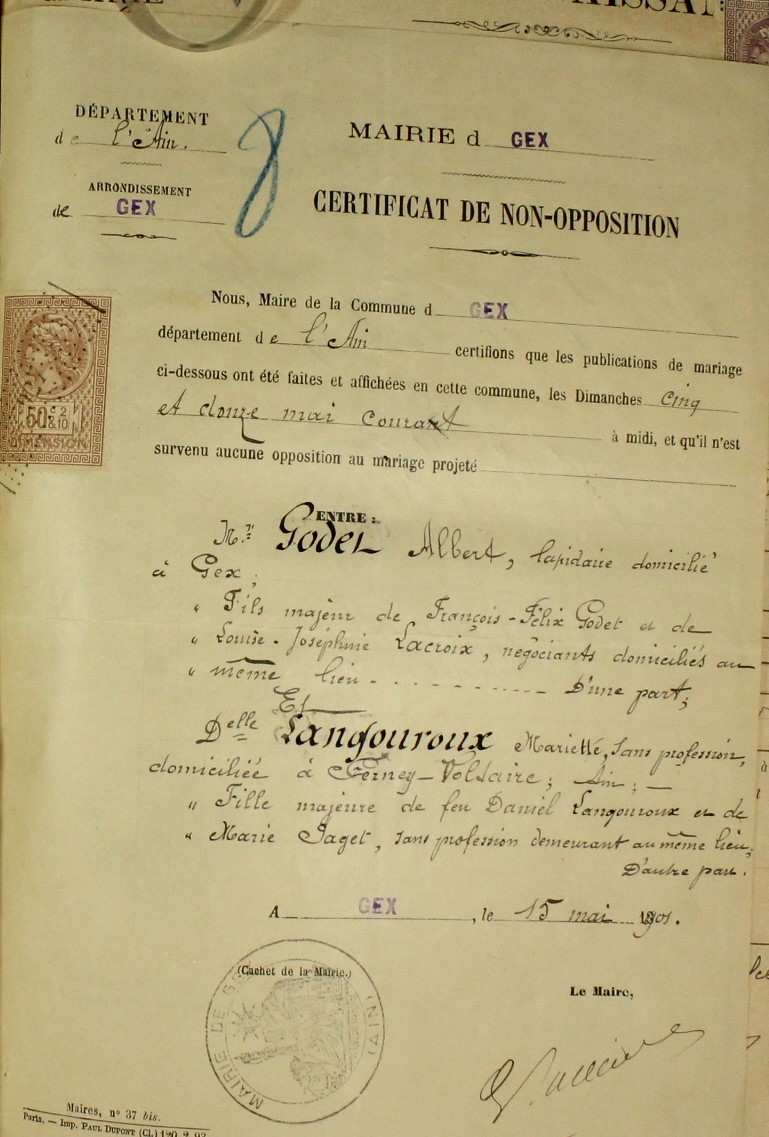 DÉPARTEMENT
de l'Ain.
ARRONDISSEMENT
de GEX
8
MAIRIE d GEX
CERTIFICAT DE NON-OPPOSITION
50c 2/10
DIMENSION
Nous, Maire de la Commune d GEX
département de l'Ain certifions que les publications de mariage
ci-dessous ont été faites et affichées en cette commune, les Dimanches cinq
et douze mai courant à midi, et qu'il n'est
survenu aucune opposition au mariage projeté
ENTRE :
Mr. Godet Albert, lapidaire domicilié
à Gex ;
" Fils majeur de François-Félix Godet et de
" Louise-Joséphine Lacroix, négociants domiciliés au
" même lieu - - - - - - - - - - D'une part;
Et
Delle Langouroux Mariette, sans profession,
domiciliée à Ferney-Voltaire; Ain; -
" Fille majeure de feu Daniel Langouroux et de
" Marie Saget, sans profession demeurant au même lieu;
D'autre part.
A GEX, le 15 mai 1901.
(Cachet de la Mairie.)
MAIRIE DE GEX (AIN)
Le Maire,
Maires, n° 37 bis.
Paris. — Imp. PAUL DUPONT (Cl.)